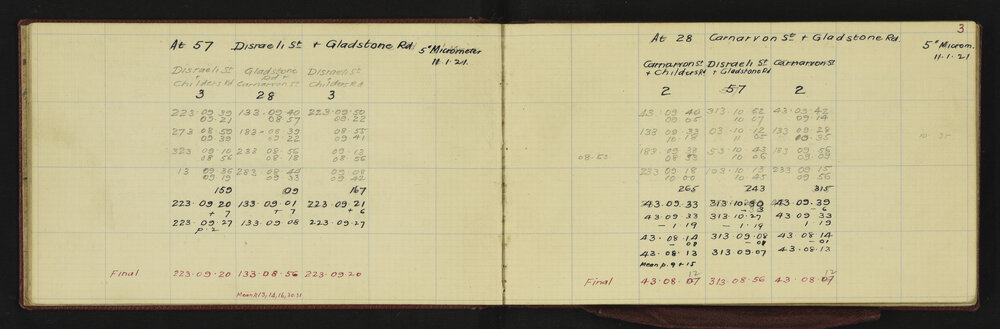 At 57 Disraeli St + Gladstone Rd 5" Micrometer
11.1.21.
Disraeli St Gladstone Disraeli St
+ Rd + +
Childers Rd Carnarvon St Childers Rd
3 28 3
223.09.39 133.09.40 223.09.50
09.21 08.57 09.22
273 08.59 183.08.39 08.55
09.39 09.22 09.41
323 09.10 233 08.56 09.13
08.56 08.18 08.56
13 09.36 283 08.44 09.08
09.19 09.33 09.42
159 09 167
223.09.20 133.09.01 223.09.21
+ 7 + 7 + 6
223.09.27 133.09.08 223.09.27
p.2
Final 223.09.20 133.08.56 223.09.20
Mean p.13, 14, 16, 30.31
3
At 28 Carnarvon St + Gladstone Rd
5" Microm.
11.1.21
Carnarvon St Disraeli St Carnarvon St
+ Childers Rd + Gladstone Rd
2 57 2
43.09.40 313.10.52 43.09.42
09.05 10.07 09.14
138 09.33 03.10.12 133 09.28
10.18 11.05 09.35
10.35
183.09.38 53.10.43 183 09.56
08.53 08.53 10.06 09.09
233 09.18 103.10.13 233 09.15
10.00 10.45 09.56
265 243 315
43.09.33 313.10.30 43.09.39
- 3 - 6
43 09 33 313.10.27 43 09 33
- 1 19 - 1.19 1 19
43.08.14 313.09.08 43 08.14
- 08 - 08 - 01
43.08.13 313.09.07 43.08.13
Mean p. 9 + 15
12 12
Final 43.08.07 313.08.56 43.08.07